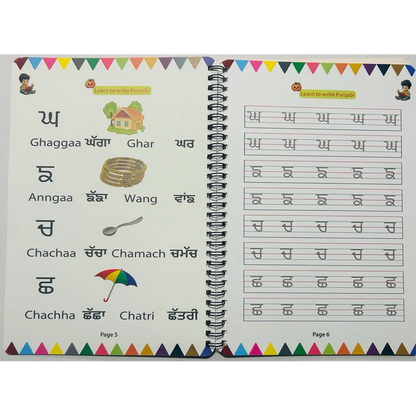 Learn to write Punjabi
ਘ
Ghaggaa ਘੱਗਾ Ghar ਘਰ
ਙ
Anngaa ਙੰਙਾ Wang ਵਾਂਙ
ਚ
Chachaa ਚੱਚਾ Chamach ਚਮੱਚ
ਛ
Chachha ਛੱਛਾ Chatri ਛੱਤਰੀ
Page 5
Learn to write Punjabi
ਘ ਘ ਘ ਘ ਘ
ਘ ਘ ਘ ਘ ਘ
ਙ ਙ ਙ ਙ ਙ
ਙ ਙ ਙ ਙ ਙ
ਚ ਚ ਚ ਚ ਚ
ਚ ਚ ਚ ਚ ਚ
ਛ ਛ ਛ ਛ ਛ
ਛ ਛ ਛ ਛ ਛ
Page 6